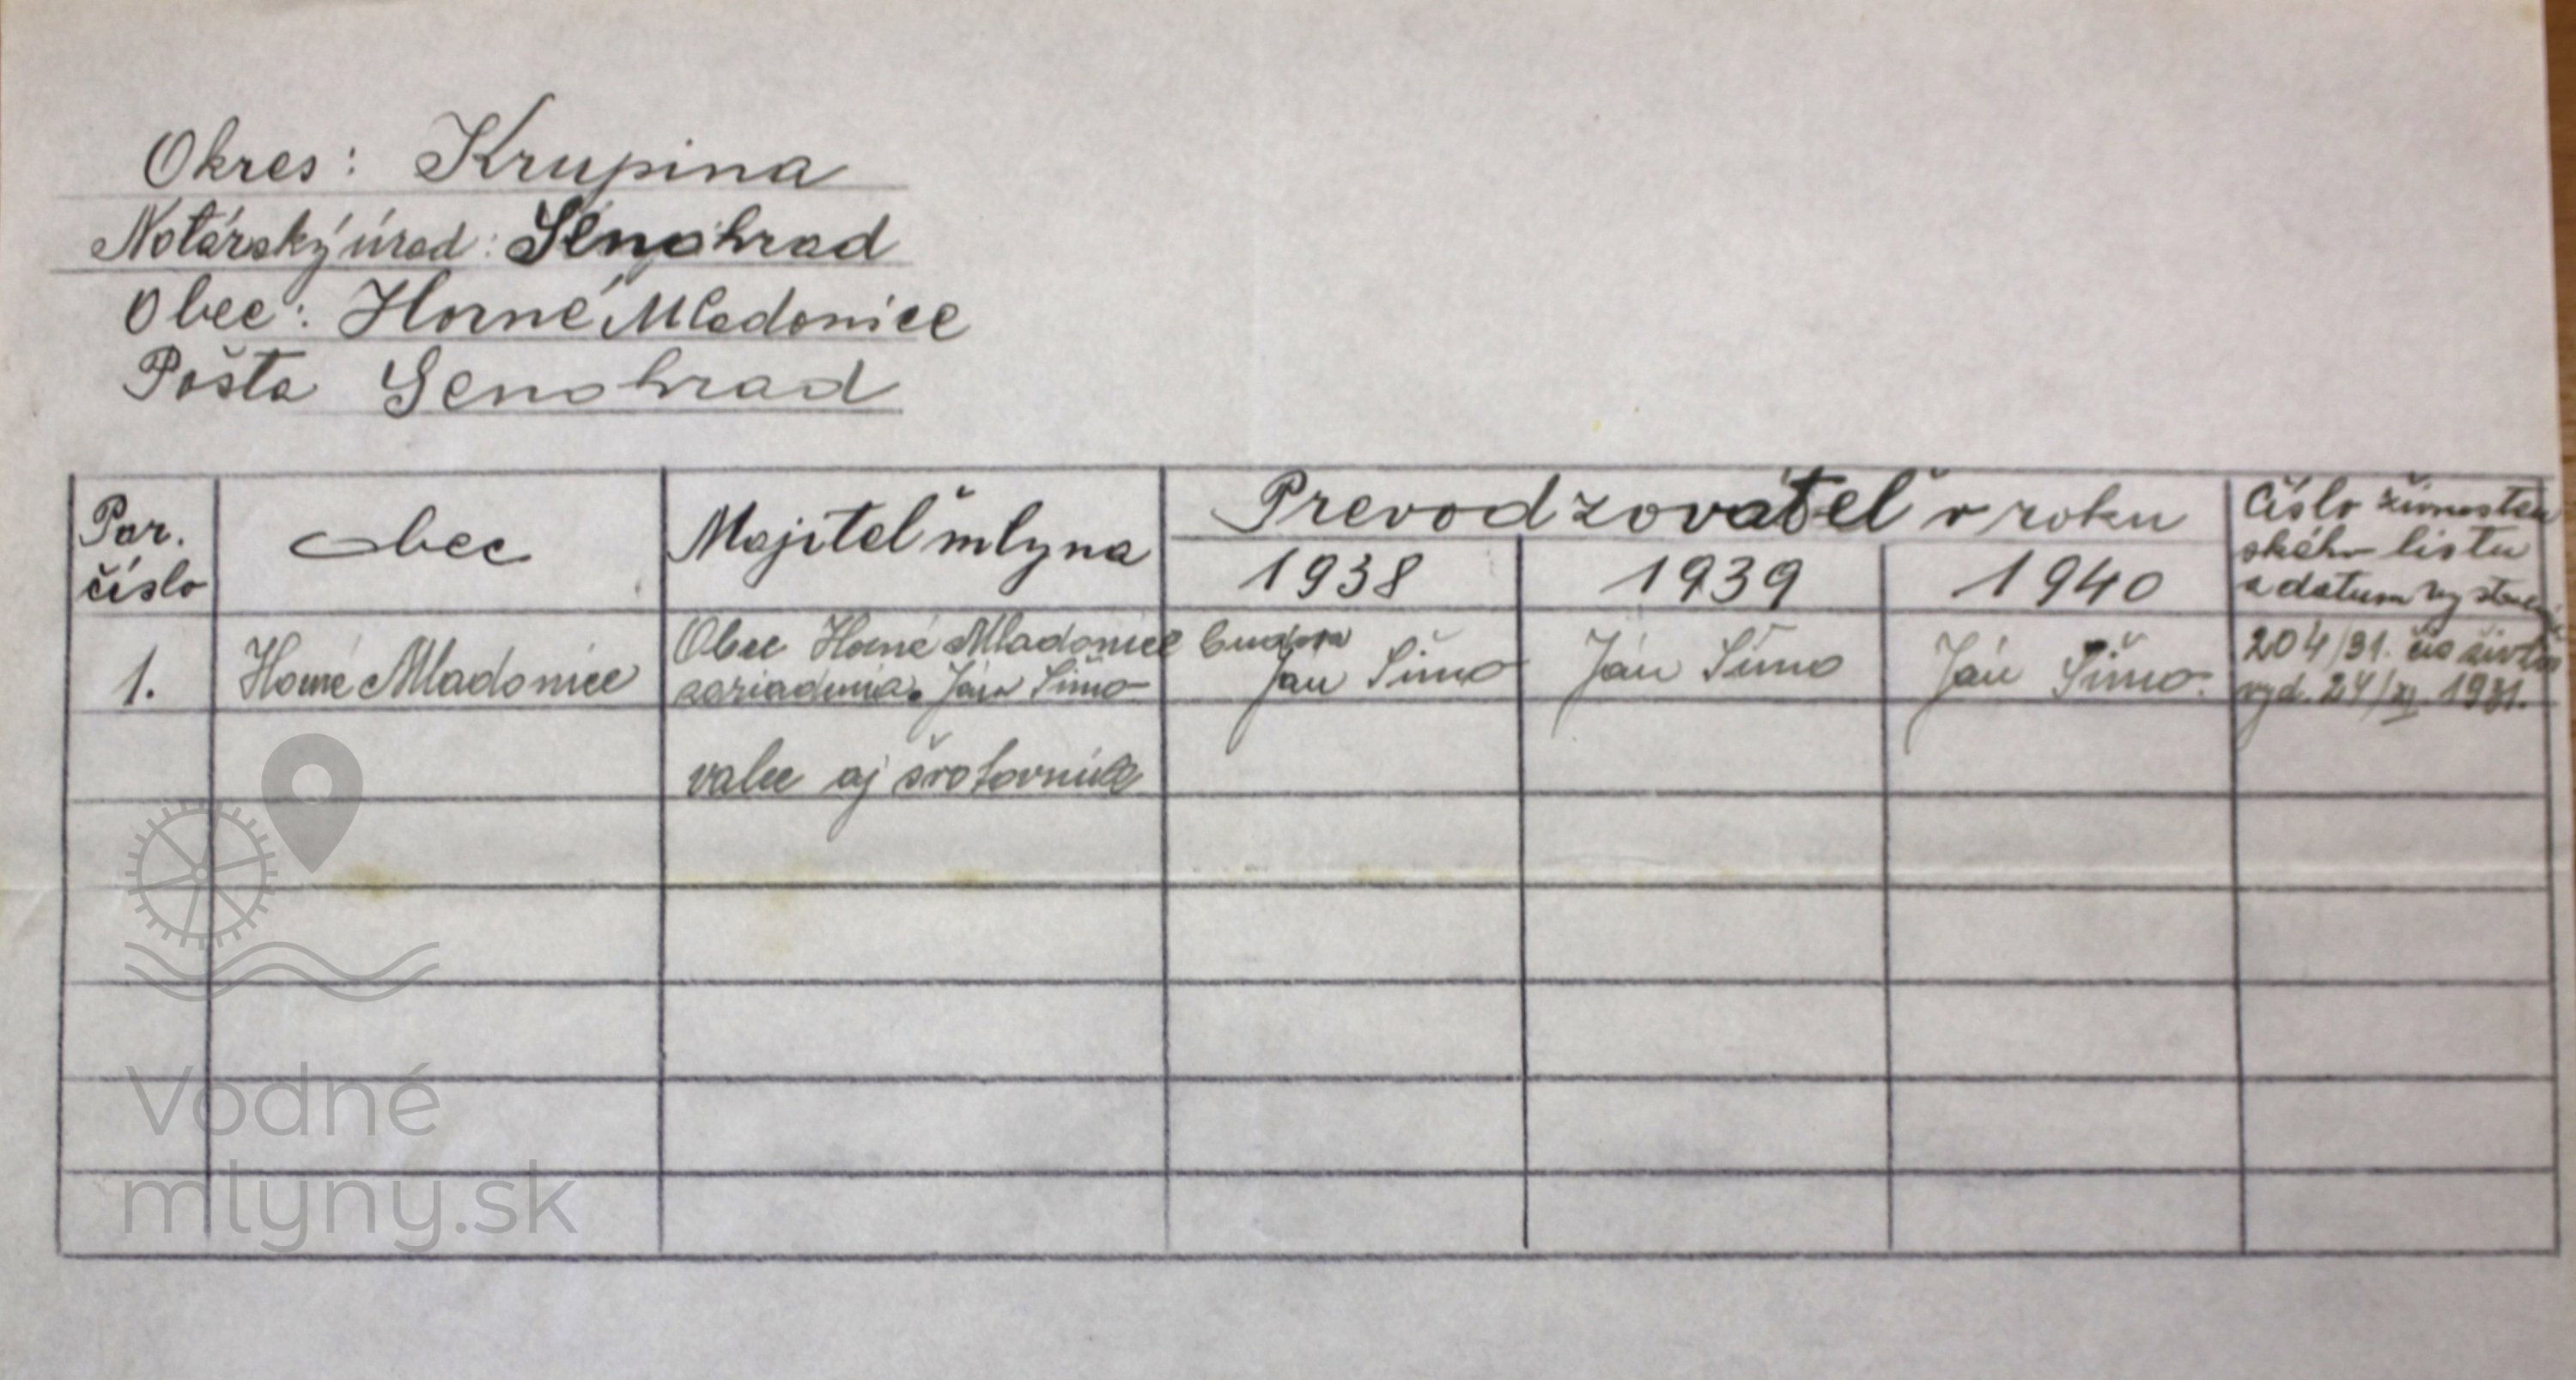 Okres: Krupina
Notárský úrad: Senohrad
Obec: Horné Mladonice
Pošta Senohrad
Por. číslo
obec
Majiteľ mlyna
Prevodzovateľ v roku
1938
1939
1940
Číslo živnosten
ského listu
a dátum vystavenia
1.
Horné Mladonice
Obec Horné Mladonice budova
zariadenia. Ján Šimo
Ján Šimo
Ján Šimo
Ján Šimo.
204/31. čis
vyd. 24/XI. 1931.
valce aj šrotovník
Vodné
mlyny.sk